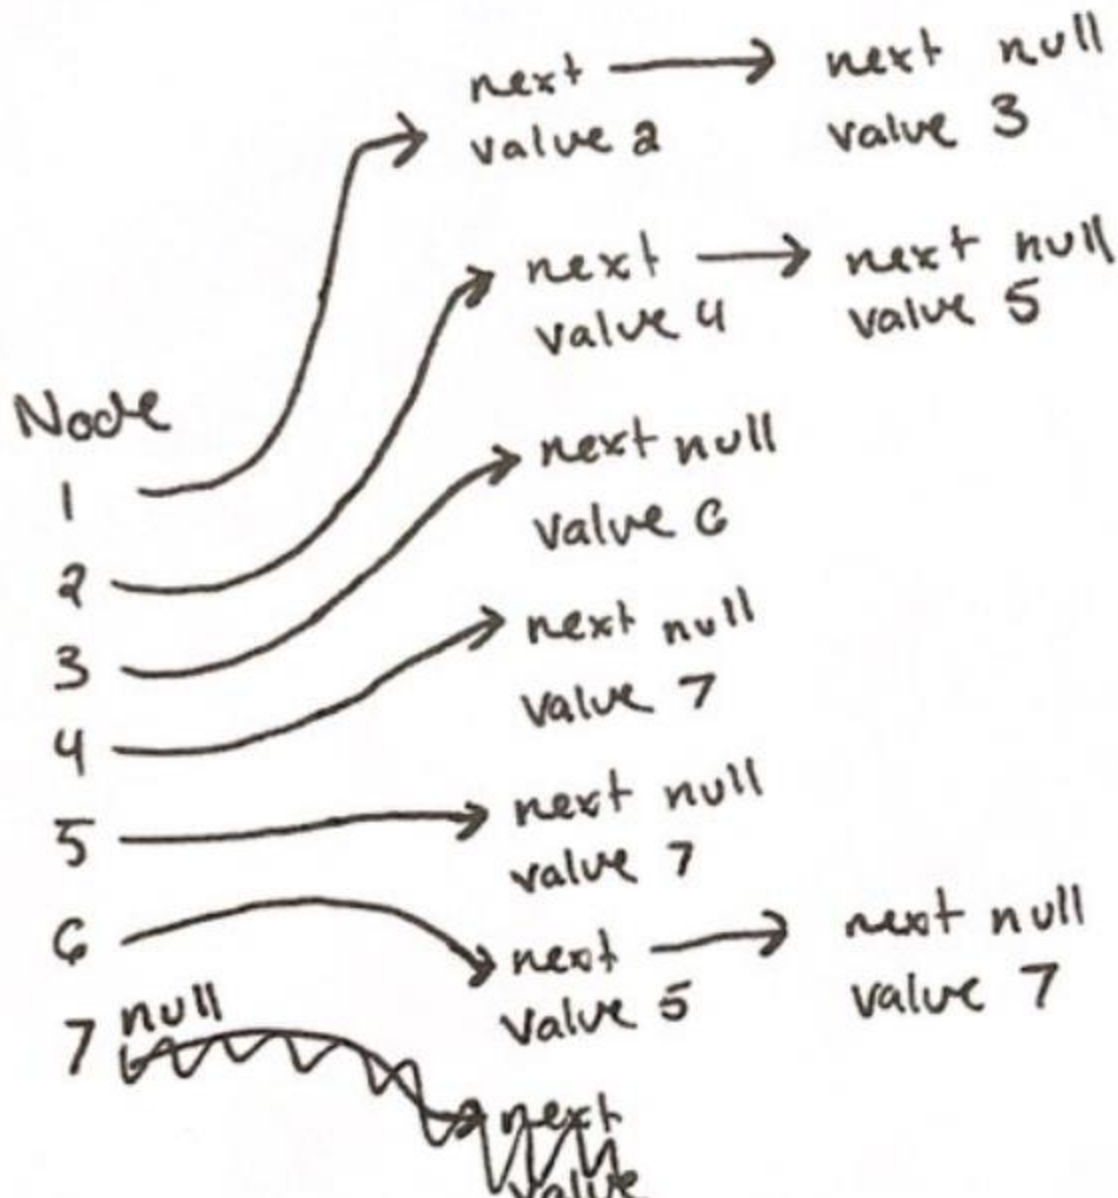 next → next null
value 2 value 3
next → next null
value 4 value 5
Node
1
next null
value 6
2
next null
3
value 7
4
next null
5
value 7
6
next → next null
value 5 value 7
null
7
next
value